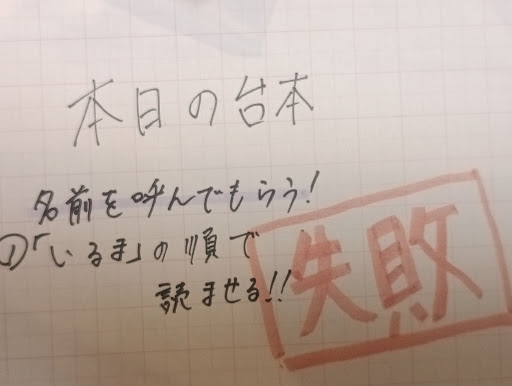 本日の台本
名前を呼んでもらう!
①「いるま」の順で
読ませる!!
失敗